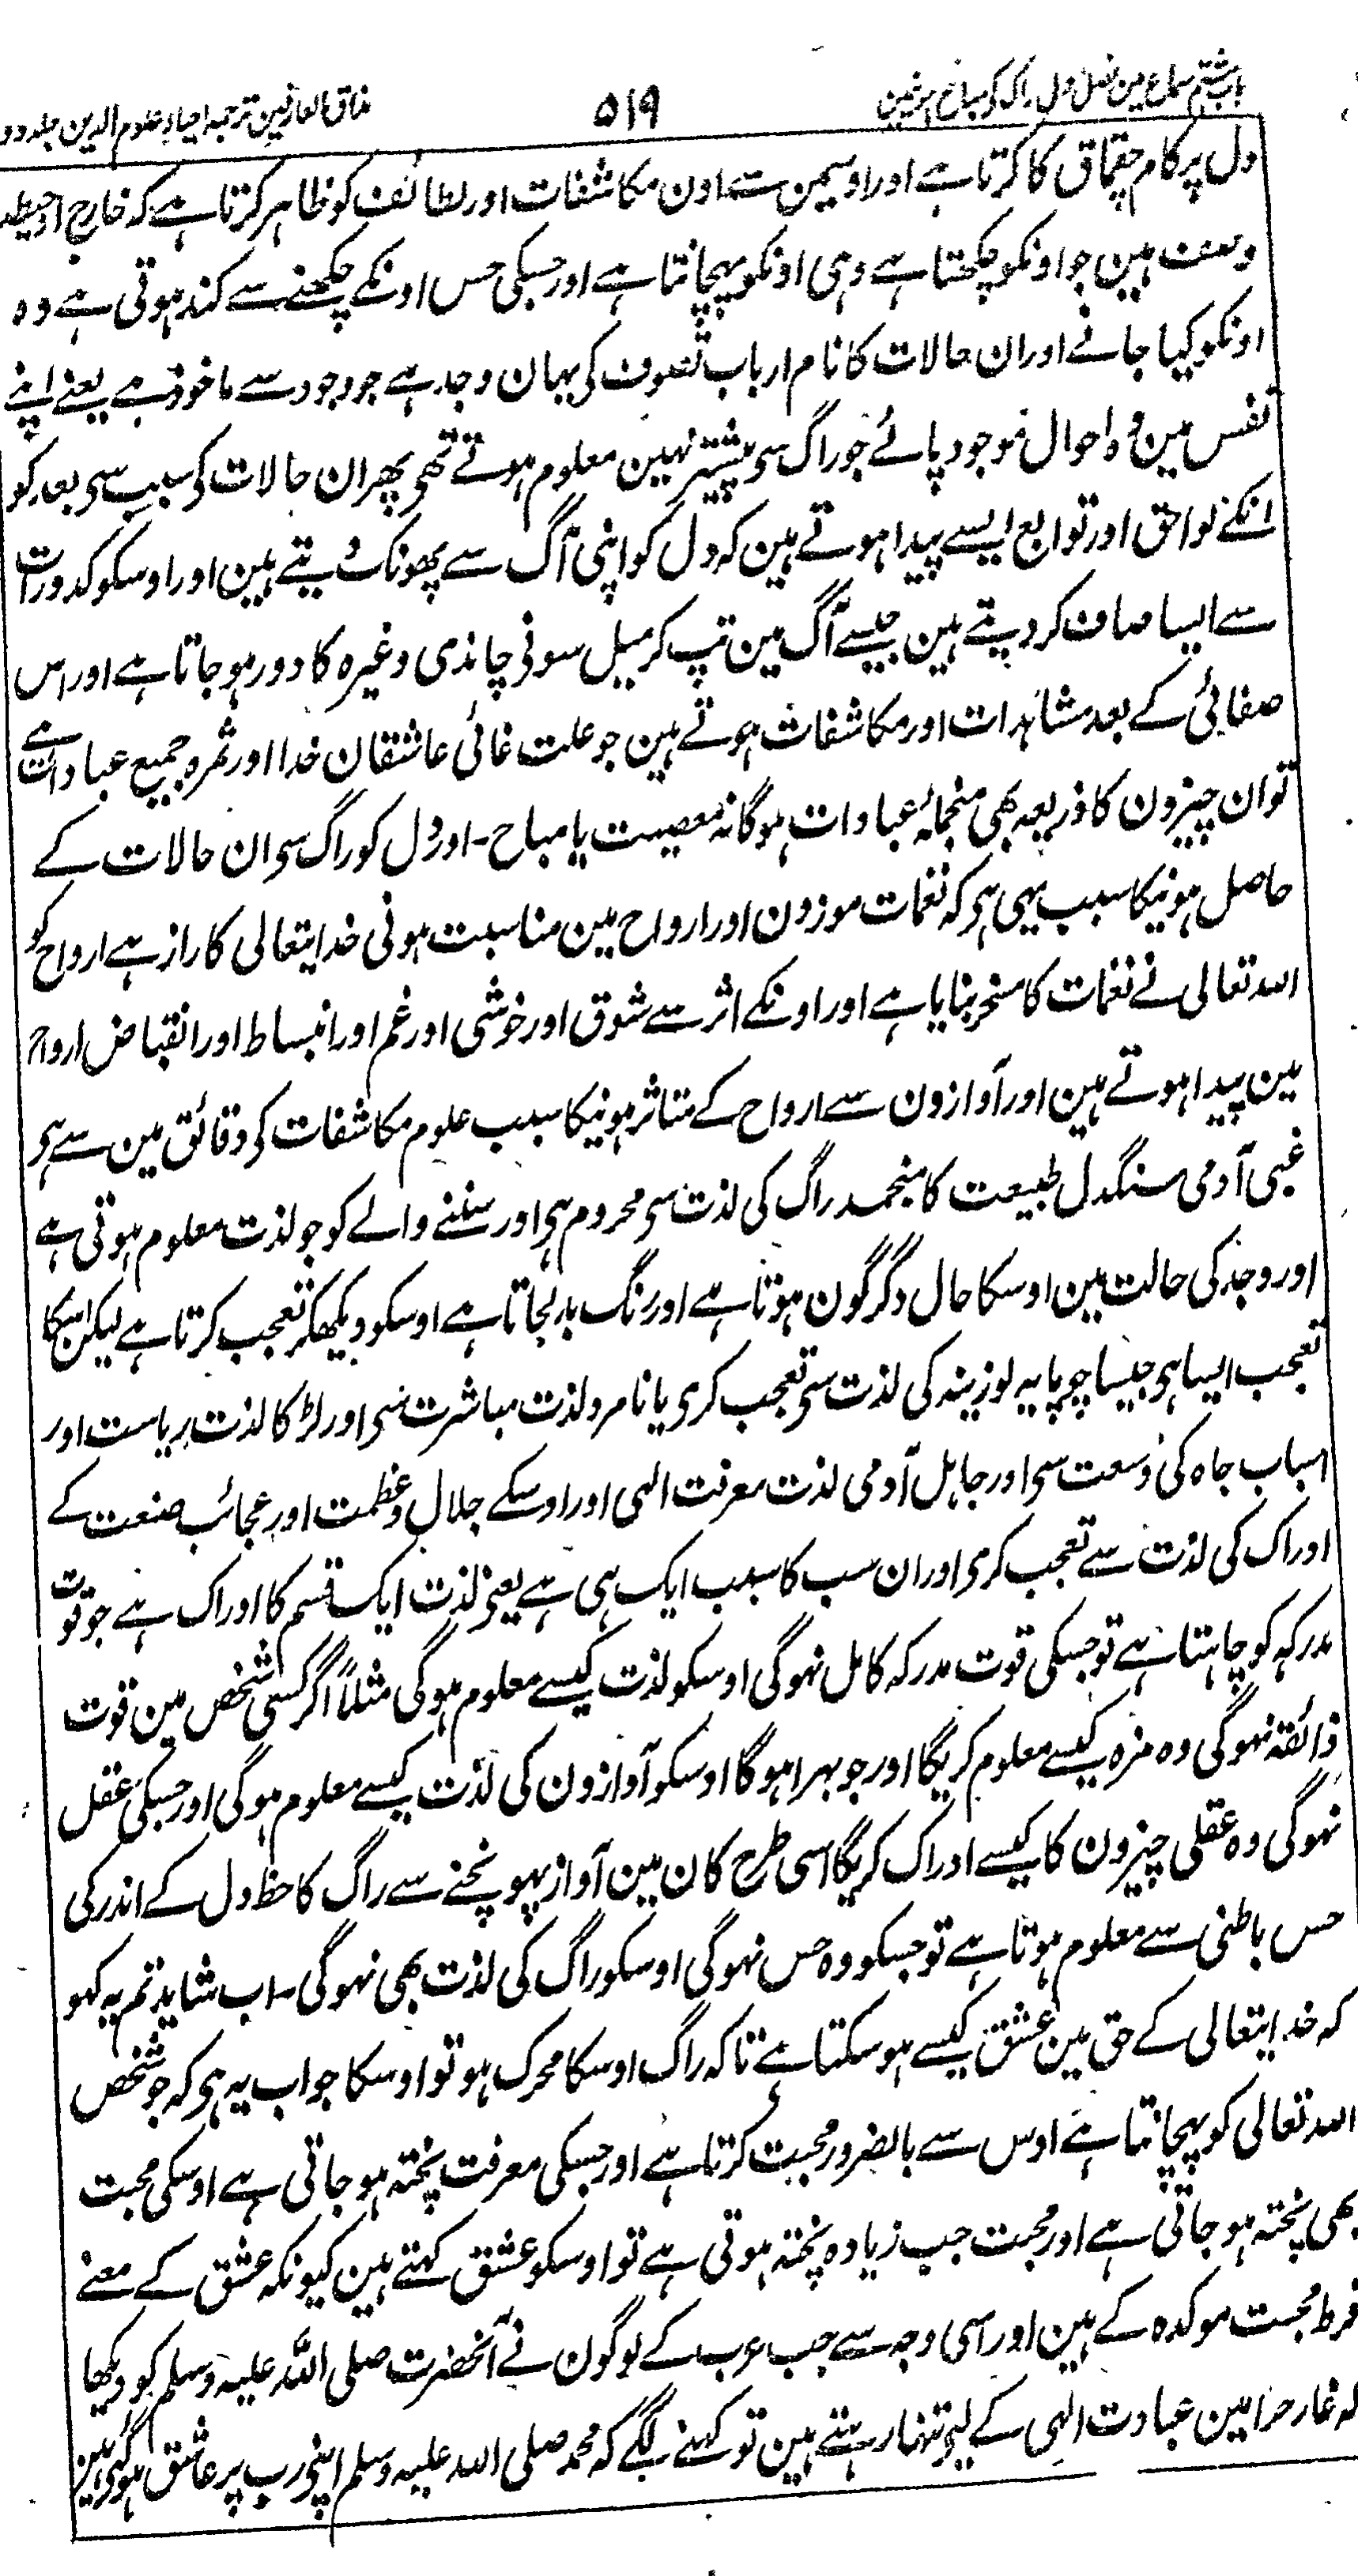 باب ہشتم سماع مین فصل اول راگ کی مباح ہونیمین
۵۱۹
مذاق العارفین ترجمہ احیاء علوم الدین جلد دو
دل پر کام چقماق کا کرتا ہے اور اوسمین سے اون مکاشفات اور لطائف کو ظاہر کرتا ہے کہ خارج از حیطہ
وصف ہین جو اونکو چکھتا ہے وہی اونکو پہچانتا ہے اور جسکی حس اونکے چکھنے سے کند ہوتی ہے وہ
اونکو کیا جانے اور ان حالات کا نام ارباب تصوف کی یہان وجد ہے جو وجود سے ماخوذ ہے یعنے اپنے
نفس مین وہ احوال موجود پائے جو راگ سی پیشتر نہین معلوم ہوتے تھی پھر ان حالات کی سبب سی بعد کو
انکے لواحق اور توابع ایسے پیدا ہوتے ہین کہ دل کو اپنی آگ سے پھونک دیتے ہین اور اوسکو کدورات
سے ایسا صاف کر دیتے ہین جیسے آگ مین تپ کر میل سونی چاندی وغیرہ کا دور ہو جاتا ہے اور اس
صفائی کے بعد مشاہدات اور مکاشفات ہوتے ہین جو علت غائی عاشقان خدا اور ثمرہ جمیع عبادات ہے
تو ان چیزون کا ذریعہ بھی منجملہ عبادات ہو گا نہ معصیت یا مباح۔ اور دل کو راگ سی ان حالات کے
حاصل ہونیکا سبب یہی ہی کہ نغمات موزون اور ارواح مین مناسبت ہونی خدایتعالی کا راز ہے ارواح کو
اللہ تعالی نے نغمات کا مسخر بنایا ہے اور اونکے اثر سے شوق اور خوشی اور غم اور انبساط اور انقباض ارواح
مین پیدا ہوتے ہین اور آوازون سے ارواح کے متاثر ہونیکا سبب علوم مکاشفات کی دقائق مین سے ہی
غبی آدمی سنگدل طبیعت کا منجمد راگ کی لذت سی محروم ہی اور سننے والے کو جو لذت معلوم ہوتی ہے
اور وجد کی حالت مین اوسکا حال دگرگون ہوتا ہے اور رنگ بدلجاتا ہے اوسکو دیکھکر تعجب کرتا ہے لیکن اسکا
تعجب ایسا ہی جیسا چوپایہ لوزینہ کی لذت سی تعجب کری یا نامرد لذت مباشرت سی اور لڑکا لذت ریاست اور
اسباب جاہ کی وسعت سی اور جاہل آدمی لذت معرفت الہی اور اوسکے جلال و عظمت اور عجائب صنعت کے
ادراک کی لذت سے تعجب کری اور ان سب کا سبب ایک ہی ہے یعنی لذت ایک قسم کا ادراک ہے جو قوت
مدرکہ کو چاہتا ہے تو جسکی قوت مدرکہ کامل نہوگی اوسکو لذت کیسے معلوم ہو گی مثلاً اگر کسی شخص مین قوت
ذائقہ نہوگی وہ مزہ کیسے معلوم کریگا اور جو بہرا ہو گا اوسکو آوازون کی لذت کیسے معلوم ہو گی اور جسکی عقل
نہوگی وہ عقلی چیزون کا کیسے ادراک کریگا اسی طرح کان مین آواز پہونچنے سے راگ کا حظ دل کے اندر کی
حس باطنی سے معلوم ہوتا ہے تو جسکو وہ حس نہوگی اوسکو راگ کی لذت بھی نہوگی۔ اب شاید تم یہ کہو
کہ خدایتعالی کے حق مین عشق کیسے ہو سکتا ہے تاکہ راگ اوسکا محرک ہو تو اوسکا جواب یہ ہی کہ جو شخص
اللہ تعالی کو پہچانتا ہے اوس سے بالضرور محبت کرتا ہے اور جسکی معرفت پختہ ہو جاتی ہے اوسکی محبت
بھی پختہ ہو جاتی ہے اور محبت جب زیادہ پختہ ہوتی ہے تو اوسکو عشق کہتے ہین کیونکہ عشق کے معنے
فرط محبت موکدہ کے ہین اور اسی وجہ سے جب عرب کے لوگون نے آنحضرت صلی اللہ علیہ وسلم کو دیکھا
کہ غار حرا مین عبادت الہی کے لیی تنہا رہتے ہین تو کہنے لگے کہ محمد صلی اللہ علیہ وسلم اپنی رب پر عاشق ہو گئی ہین